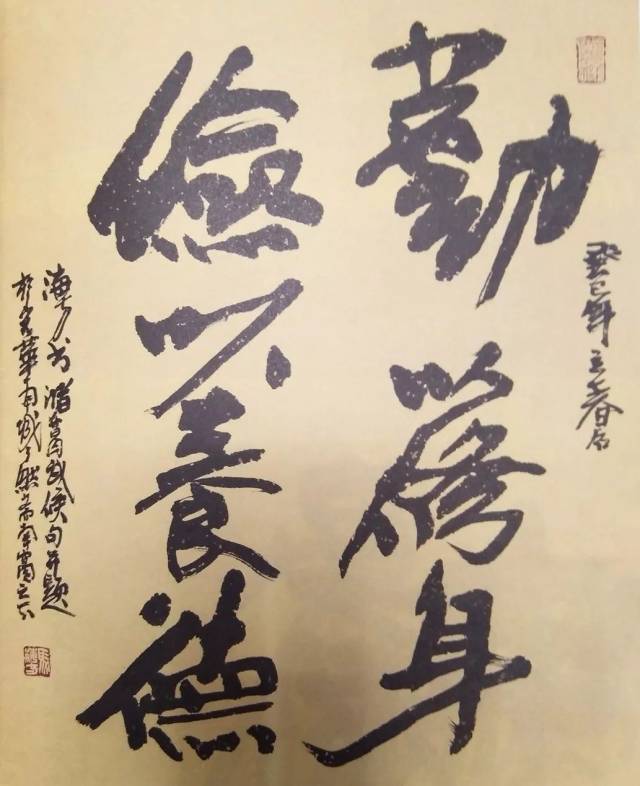 癸巳年立春后
勤以修身
俭以养德
海方书诸葛武侯句并题
于京华南城了然斋南窗之下